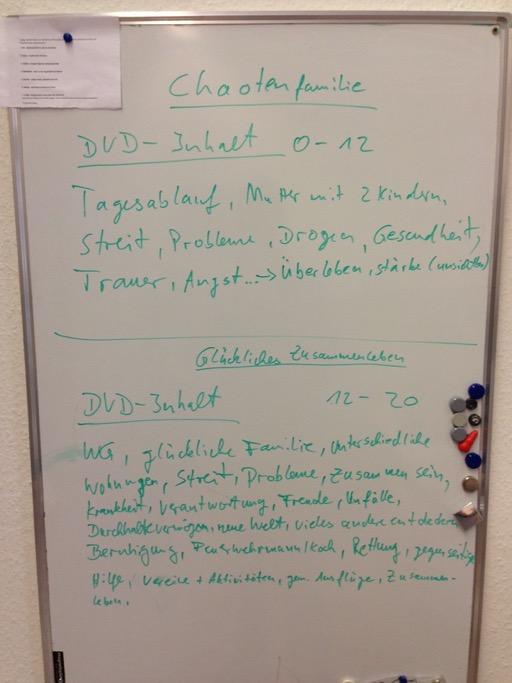 Chaotenfamilie
DVD-Inhalt 0-12
Tagesablauf, Mutter mit 2 Kindern,
Streit, Probleme, Drogen, Gesundheit,
Trauer, Angst...→ Überleben, stärke (unsichtbar)
Glückliches Zusammenleben
DVD-Inhalt 12-20
WG, glückliche Familie, Unterschiedliche
Wohnungen, Streit, Probleme, Zusammen sein,
Krankheit, Verantwortung, Freude, Unfälle,
Durchhaltevermögen, neue Welt, vieles andere entdecken
Beruhigung, Feuerwehrmann/Koch, Rettung, gegenseitige
Hilfe, Vereine + Aktivitäten, gem. Ausflüge, Zusammen-
leben.